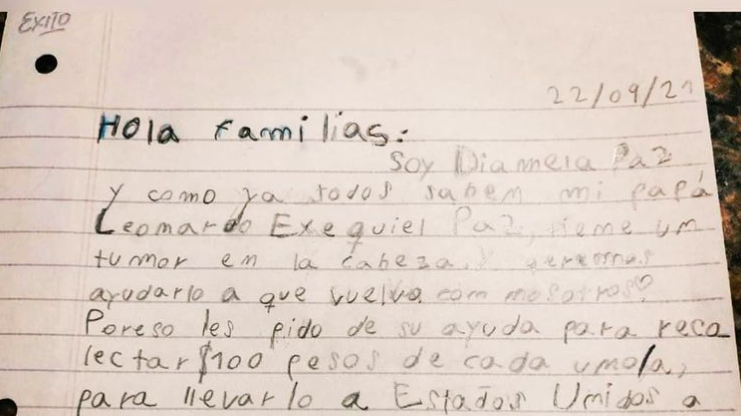 EXITO
22/09/21
Hola familias:
Soy Diamela Paz
y como ya todos sabem mi papá
Leomardo Exequiel Paz, tieme um
tumor em la cabeza. y qeremos
ayudarlo a que vuelva com mosotros?
Poreso les pido de su ayuda para reca
lectar $100 pesos de cada umo/a,
para llevarlo a Estados Umidos a